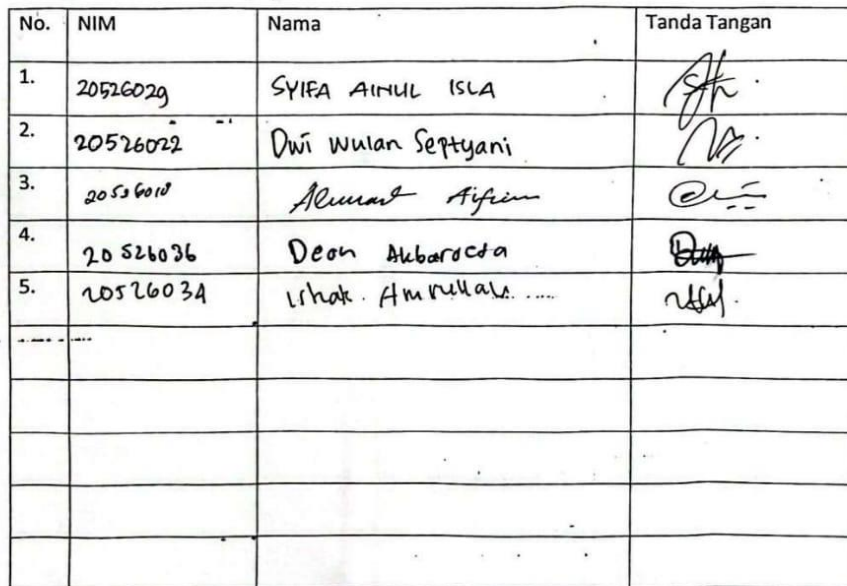 No. NIM Nama Tanda Tangan
1. 20526029 SYIFA AINUL ISLA
2. 20526022 Dwi Wulan Septyani
3.
4. 20526036 Deon Akbarocta
5. 20526034 Ishak Amrullah